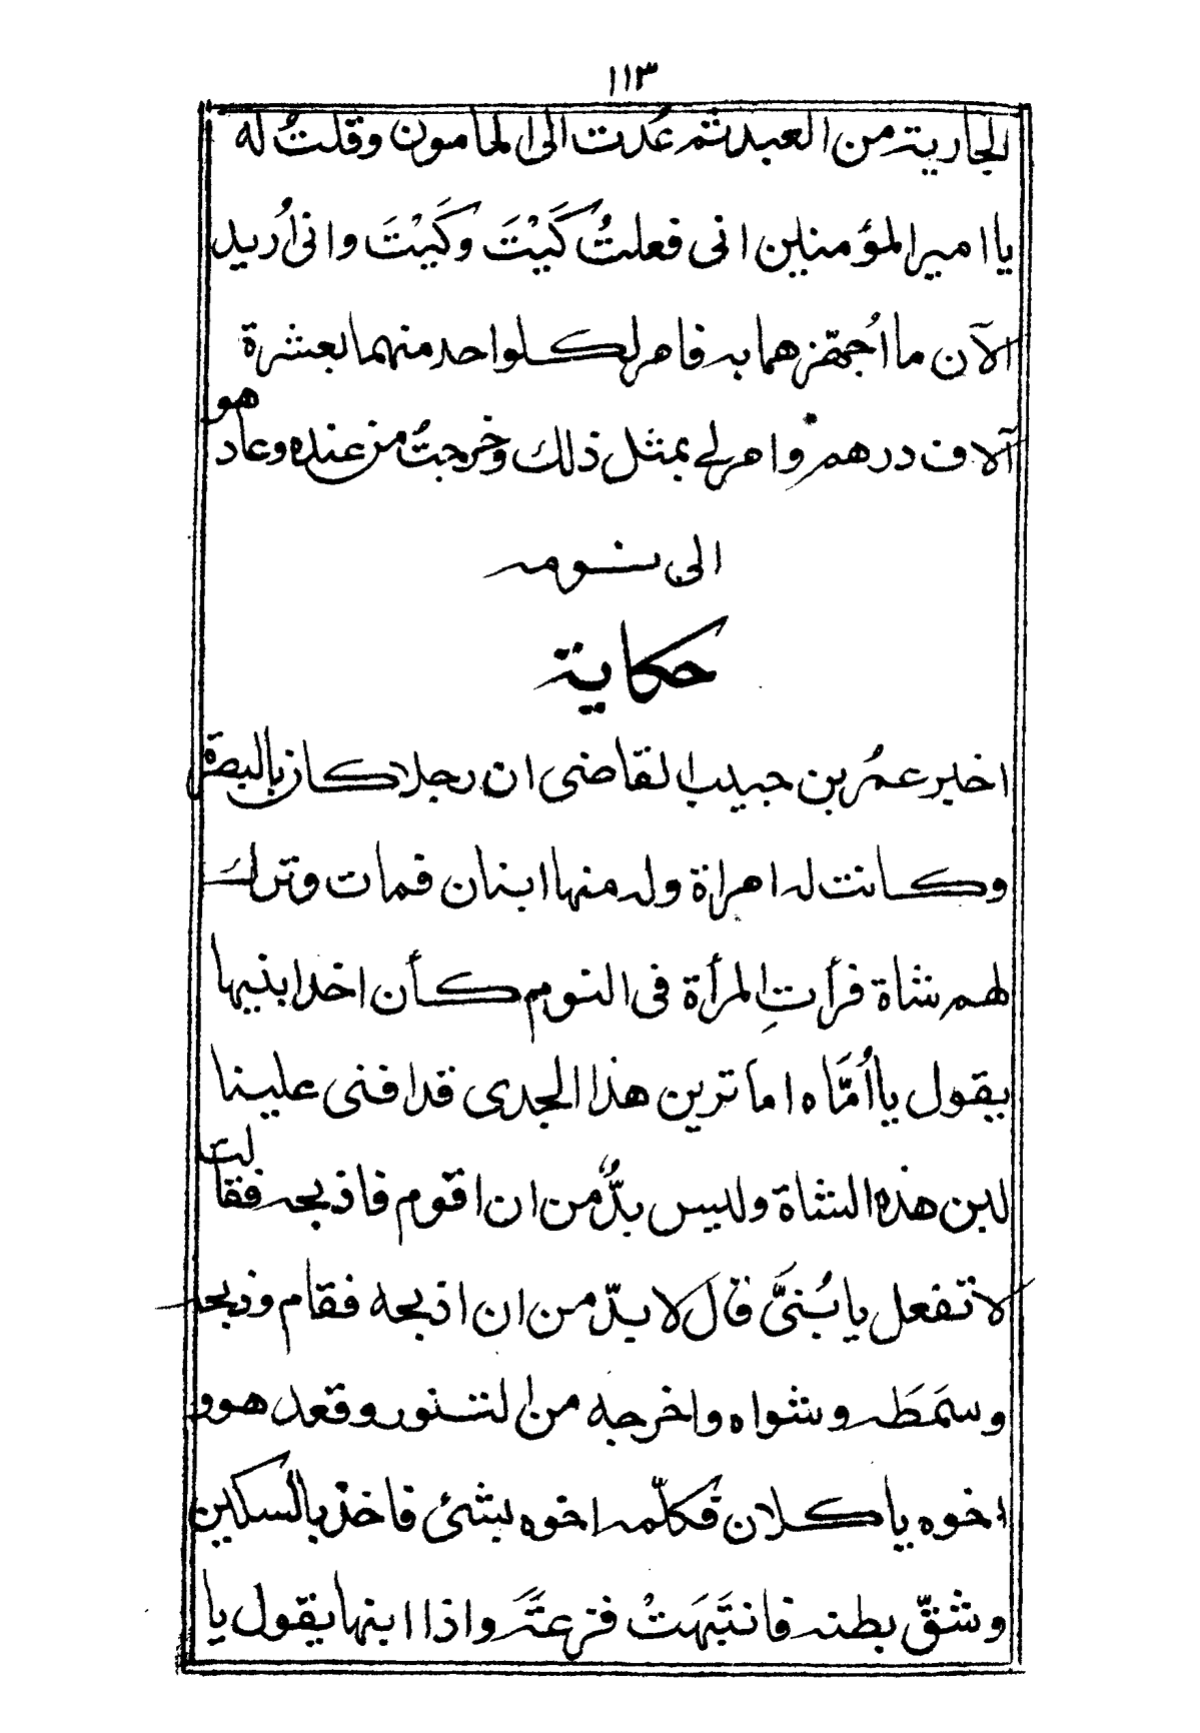 ١١٣
الجارية من العبد ثم عُدت الى المامون وقلتُ له
يا امير المؤمنين انى فعلتُ كَيْتَ وكَيْتَ وانى اُريد
الآن ما اُجهّزهما به فامر لكل واحد منهما بعشرة
آلاف درهم وامر لے بمثل ذلك وخرجتُ من عنده وعاد هو
الى نومه
حكاية
اخبر عمُر بن حبيب القاضى ان رجلا كان بالبصرة
وكانت له امراة وله منها ابنان فمات وترك
لهم شاة فرأتِ المرأة فى النوم كأن احد ابنيها
يقول يا اُمَّاه اما ترين هذا الجدى قد افنى علينا
لبن هذه الشاة وليس بدٌّ من ان اقوم فاذبحه فقالت
لا تفعل يا بُنىَّ قال لا بدّ من ان اذبحه فقام وذبحه
وسمَطَه وشواه واخرجه من التنور وقعد هو و
اخوه ياكلان فكلّمه اخوه بشئ فاخذ بالسكين
وشقّ بطنه فانتَبَهَتْ فزعَةً واذا ابنها يقول يا